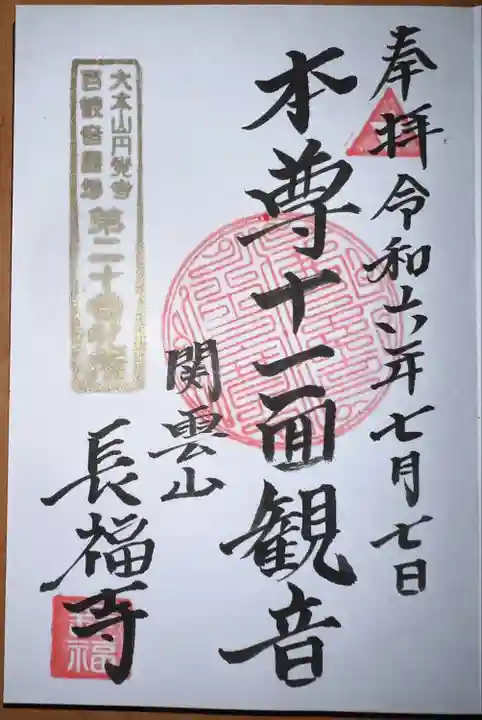 奉拝 令和六年七月七日
本尊十一面観音
関雲山
長福寺
大本山円覚寺
百観音霊場
第二十
長福